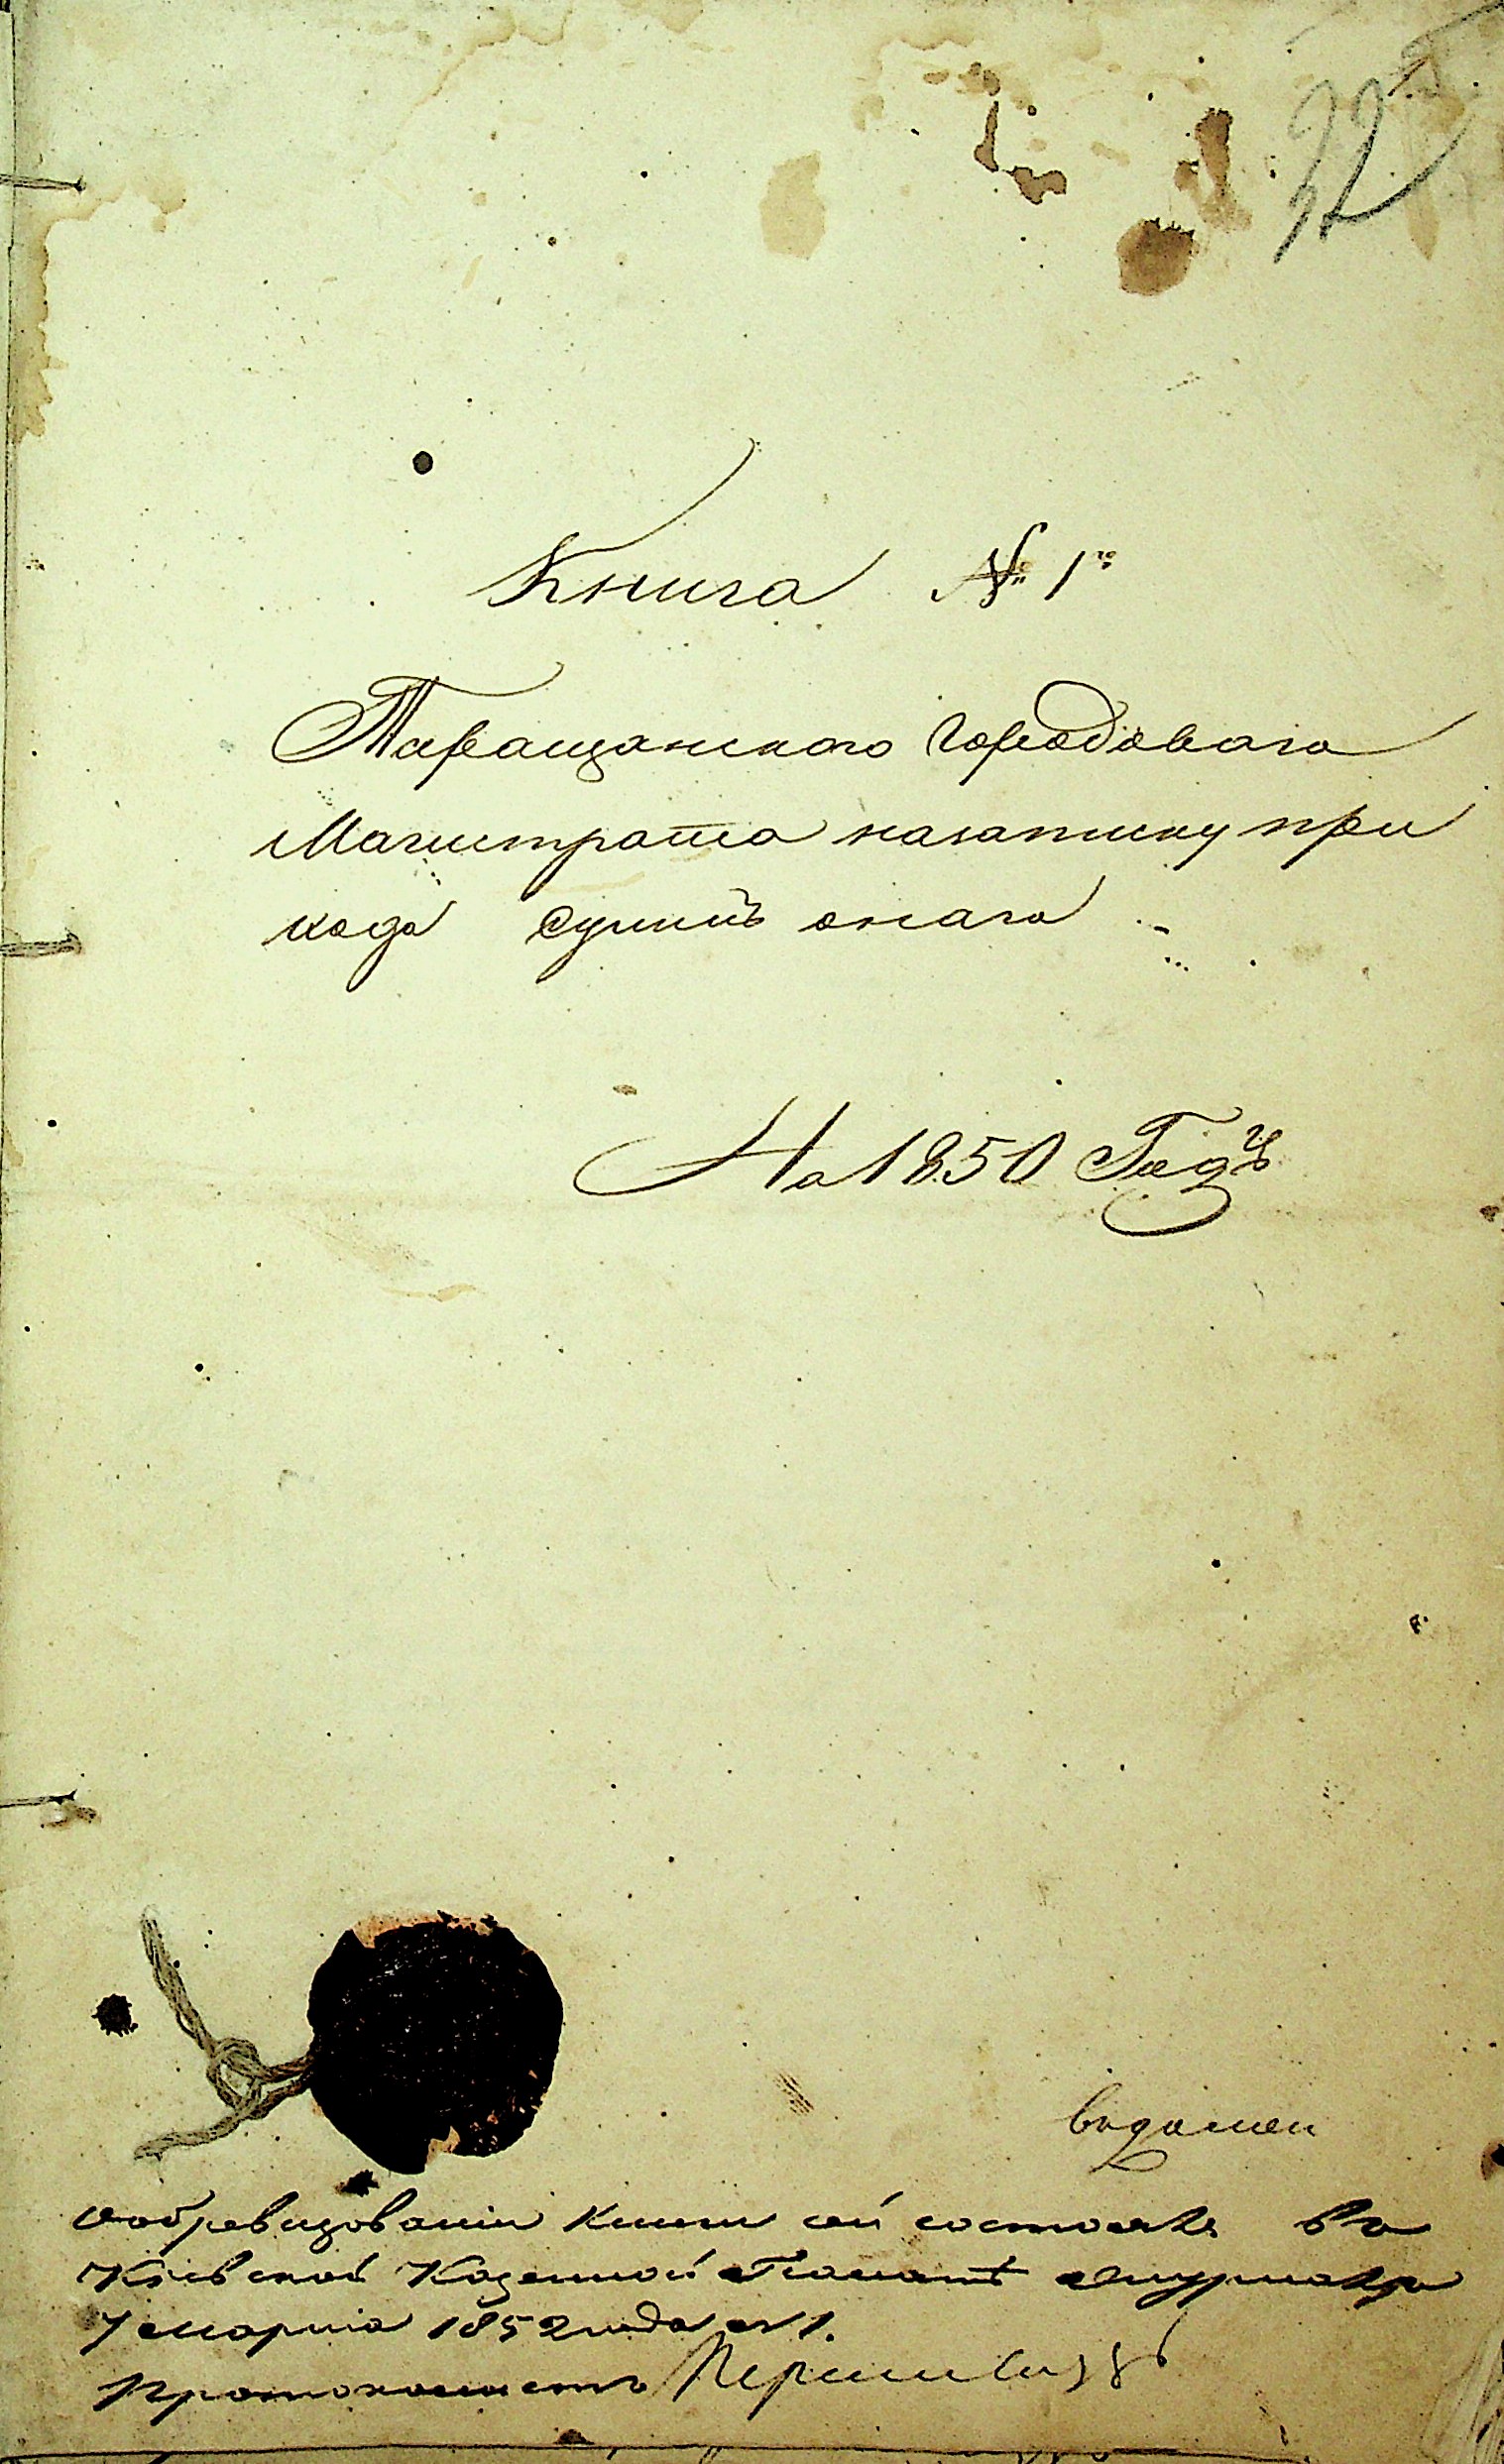 22
Книга № 1й
Таращанского Городоваго
Магистрата назаписку при
хода суммъ онаго
На 1850 Годъ
Обревизованіи Книги сей состоялъ въ
Кіевской Казенной Палатѣ журналъ
7 марта 1852 года № 1.
Протоколистъ